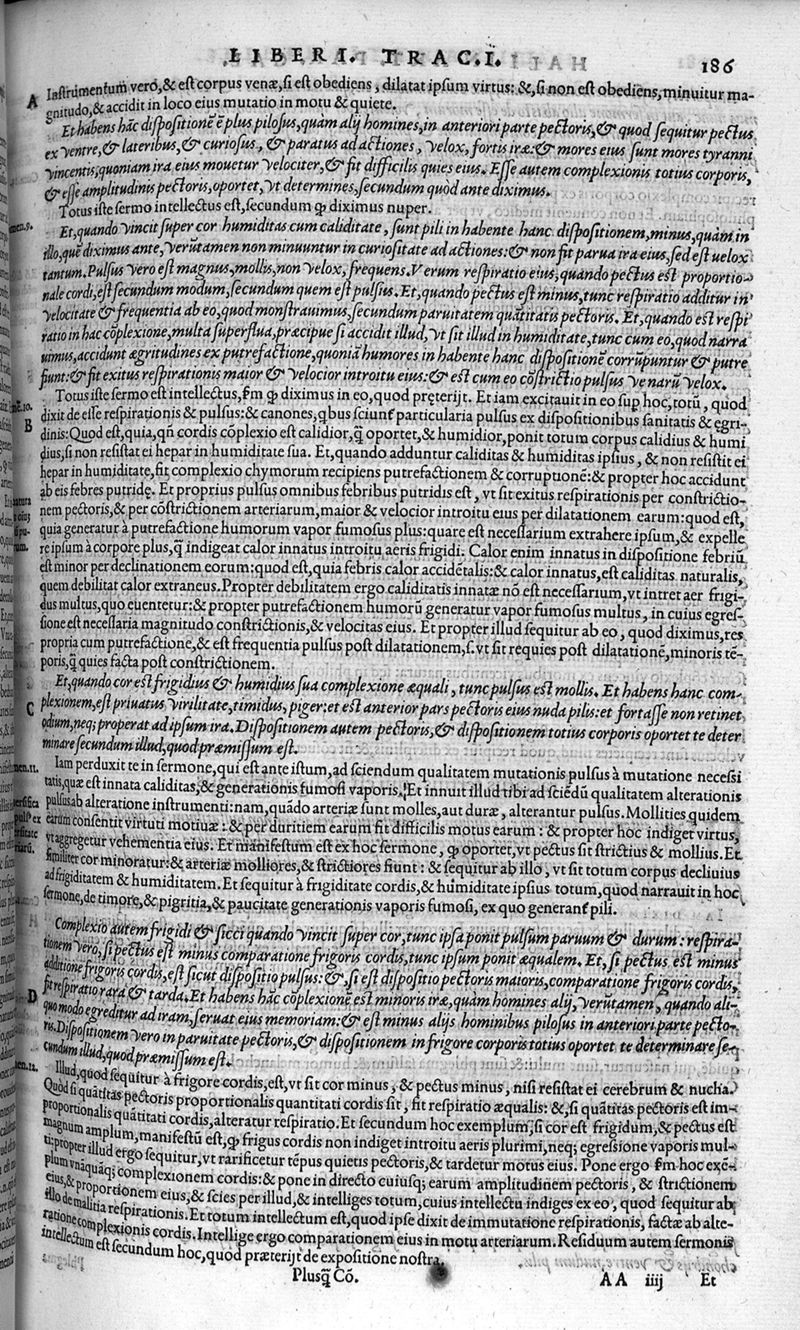 LIBER I. TRAC. I. 186
Instrumentum verò, & est corpus venæ, si est obediens, dilatat ipsum virtus: &, si non est obediens, minuitur ma-
A gnitudo, & accidit in loco eius mutatio in motu & quiete.
Et habens hãc dispositionẽ ẽ plus pilosus, quàm alij homines, in anteriori parte pectoris, & quod sequitur pectus
ex ventre, & lateribus, & curiosus, & paratus ad actiones, velox, fortis iræ: & mores eius sunt mores tyranni
vincentis, quoniam ira eius mouetur velociter, & fit difficilis quies eius. Esse autem complexionis totius corporis,
& esse amplitudinis pectoris, oportet, vt determines, secundum quòd ante diximus.
Totus iste sermo intellectus est, secundum qꝫ diximus nuper.
Et, quando vincit super cor humiditas cum caliditate, sunt pili in habente hanc dispositionem, minus, quàm in
illo, quẽ diximus ante, verũtamen non minuuntur in curiositate ad actiones: & non fit parua ira eius, sed est uelox
tantum. Pulsus vero est magnus, mollis, non velox, frequens. Verum respiratio eius, quando pectus est proportio-
nale cordi, est secundum modum, secundum quem est pulsus. Et, quando pectus est minus, tunc respiratio additur in
velocitate & frequentia ab eo, quod monstrauimus, secundum paruitatem quãtitatis pectoris. Et, quando est respi
ratio in hac cõplexione, multa superflua, præcipue si accidit illud, vt sit illud in humiditate, tunc cum eo, quod narra
uimus, accidunt ægritudines ex putrefactione, quoniã humores in habente hanc dispositionẽ corrũpuntur & putre
fiunt: & fit exitus respirationis maior & velocior introitu eius: & est cum eo cõstrictio pulsus venarũ velox.
Totus iste sermo est intellectus, ẜm qꝫ diximus in eo, quod pręterijt. Et iam excitauit in eo sup hoc, totũ, quod
B dixit de esse respirationis & pulsus: & canones, qbus sciunt̃ particularia pulsus ex dispositionibus sanitatis & egri-
dinis: Quod est, quia, qñ cordis cõplexio est calidior, q̃ oportet, & humidior, ponit totum corpus calidius & humi
dius, si non resistat ei hepar in humiditate sua. Et, quando adduntur caliditas & humiditas ipsius, & non resistit ei
hepar in humiditate, fit complexio chymorum recipiens putrefactionem & corruptionẽ: & propter hoc accidunt
ab eis febres putridę. Et proprius pulsus omnibus febribus putridis est, vt sit exitus respirationis per constrictio-
nem pectoris, & per cõstrictionem arteriarum, maior & velocior introitu eius per dilatationem earum: quod est,
quia generatur à putrefactione humorum vapor fumosus plus: quare est necessarium extrahere ipsum, & expelle
re ipsum à corpore plus, q̃ indigeat calor innatus introitu aeris frigidi. Calor enim innatus in dispositione febriũ
est minor per declinationem eorum: quod est, quia febris calor accidẽtalis: & calor innatus, est caliditas naturalis,
quem debilitat calor extraneus. Propter debilitatem ergo caliditatis innatæ nõ est necessarium, vt intret aer frigi-
dus multus, quo euentetur: & propter putrefactionem humorũ generatur vapor fumosus multus, in cuius egres-
sione est necessaria magnitudo constrictionis, & velocitas eius. Et propter illud sequitur ab eo, quod diximus, res
propria cum putrefactione, & est frequentia pulsus post dilatationem, s. vt sit requies post dilatationẽ, minoris tẽ-
poris, q̃ quies facta post constrictionem.
Et, quando cor est frigidius & humidius sua complexione æquali, tunc pulsus est mollis. Et habens hanc com-
C plexionem, est priuatus virilitate, timidus, piger: et est anterior pars pectoris eius nuda pilis: et fortasse non retinet
odium, neqꝫ properat ad ipsum ira. Dispositionem autem pectoris, & dispositionem totius corporis oportet te deter
minare secundum illud, quod præmissum est.
Iam perduxit te in sermone, qui est ante istum, ad sciendum qualitatem mutationis pulsus à mutatione necessi
tatis, quæ est innata caliditas, & generationis fumosi vaporis. Et innuit illud tibi ad sciẽdũ qualitatem alterationis
pulsus ab alteratione instrumenti: nam, quãdo arteriæ sunt molles, aut duræ, alterantur pulsus. Mollities quidem
earum consentit virtuti motiuæ: & per duritiem earum fit difficilis motus earum: & propter hoc indiget virtus,
vt aggregetur vehementia eius. Et manifestum est ex hoc sermone, qꝫ oportet, vt pectus sit strictius & mollius. Et
similiter cor minoratur: & arteriæ molliores, & strictiores fiunt: & sequitur ab illo, vt sit totum corpus decliuius
ad frigiditatem & humiditatem. Et sequitur à frigiditate cordis, & humiditate ipsius totum, quod narrauit in hoc
sermone, de timore, & pigritia, & paucitate generationis vaporis fumosi, ex quo generant̃ pili.
Complexio autem frigidi & sicci quando vincit super cor, tunc ipsa ponit pulsum paruum & durum: respira-
tionem vero, si pectus est minus comparatione frigoris cordis, tunc ipsum ponit æqualem. Et, si pectus est minus
additione frigoris cordis, est sicut dispositio pulsus: &, si est dispositio pectoris maioris, comparatione frigoris cordis,
D fit respiratio rara & tarda. Et habens hãc cõplexionẽ est minoris iræ, quàm homines alij, verũtamen, quando ali-
quo modo egreditur ad iram, seruat eius memoriam: & est minus alijs hominibus pilosus in anteriori parte pecto-
ris. Dispositionem vero in paruitate pectoris, & dispositionem in frigore corporis totius oportet te determinare se-
cundum illud, quod præmissum est.
Illud, quod sequitur à frigore cordis, est, vt sit cor minus, & pectus minus, nisi resistat ei cerebrum & nucha.
Quòd si quãtitas pectoris proportionalis quantitati cordis sit, fit respiratio æqualis: &, si quãtitas pectoris est im-
proportionalis quãtitati cordis, alteratur respiratio. Et secundum hoc exemplum, si cor est frigidum, & pectus est
magnum amplum, manifestũ est, qꝫ frigus cordis non indiget introitu aeris plurimi, neqꝫ egressione vaporis mul-
ti: propter illud ergo sequitur, vt rarificetur tẽpus quietis pectoris, & tardetur motus eius. Pone ergo ẜm hoc exẽ-
plum vnãquãqꝫ complexionem cordis: & pone in directo cuiusqꝫ earum amplitudinem pectoris, & strictionem
eius, & proportionem eius, & scies per illud, & intelliges totum, cuius intellectu indiges ex eo, quod sequitur ab
illo de malitia respirationis. Et totum intellectum est, quod ipse dixit de immutatione respirationis, factæ ab alte-
ratione complexionis cordis. Intellige ergo comparationem eius in motu arteriarum. Residuum autem sermonis
intellectum est secundum hoc, quod præterijt de expositione nostra.
Plusq̃ Cõ. AA iiij Et